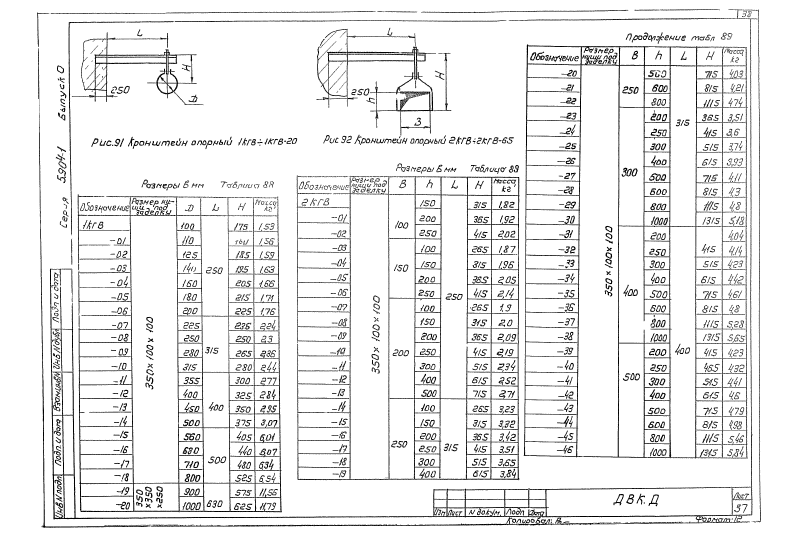 38
Серия 5.904-1 Выпуск 0
L
H
250
D
Рис.91 Кронштейн опорный 1КГВ÷1КГВ-20
L
H
250
h
В
Рис 92 Кронштейн опорный 2КГВ÷2КГВ-65
Размеры в мм Таблица 88
Обозначение Размер ниши под заделку D L H Масса кг
1КГВ 350×100×100 100 250 175 1,53
-01 110 1,56
-02 125 185 1,59
-03 140 195 1,63
-04 160 205 1,66
-05 180 215 1,71
-06 200 225 1,76
-07 225 315 236 2,24
-08 250 250 2,3
-09 280 265 2,36
-10 315 280 2,44
-11 355 400 300 2,77
-12 400 325 2,84
-13 450 350 2,95
-14 500 375 3,07
-15 560 500 405 6,01
-16 630 440 6,07
-17 710 480 6,34
-18 800 525 6,54
-19 350×350×250 900 630 575 11,56
-20 1000 625 11,79
Размеры в мм Таблица 89
Обозначение Размер ниши под заделку В h L H Масса кг
2КГВ 350×100×100 100 150 250 315 1,82
-01 200 365 1,92
-02 250 415 2,02
-03 150 100 265 1,87
-04 150 315 1,96
-05 200 365 2,05
-06 250 415 2,14
-07 200 100 265 1,9
-08 150 315 2,0
-09 200 365 2,09
-10 250 415 2,19
-11 300 515 2,34
-12 400 615 2,52
-13 500 715 2,71
-14 250 100 315 265 3,23
-15 150 315 3,32
-16 200 365 3,42
-17 250 415 3,51
-18 300 515 3,65
-19 400 615 3,84
Продолжение табл 89
Обозначение Размер ниши под заделку В h L H Масса кг
-20 350×100×100 250 500 315 715 4,03
-21 600 815 4,21
-22 800 1115 4,74
-23 300 200 365 3,51
-24 250 415 3,6
-25 300 515 3,74
-26 400 615 3,93
-27 500 715 4,11
-28 600 815 4,3
-29 800 1115 4,8
-30 1000 1315 5,18
-31 400 200 400 4,04
-32 250 415 4,14
-33 300 515 4,23
-34 400 615 4,42
-35 500 715 4,61
-36 600 815 4,8
-37 800 1115 5,28
-38 1000 1315 5,65
-39 500 200 415 4,23
-40 250 465 4,32
-41 300 515 4,41
-42 400 615 4,6
-43 500 715 4,79
-44 600 815 4,98
-45 800 1115 5,46
-46 1000 1315 5,84
Инв N подл Подп. и дата Взам.инв.N Инв N дубл Подп и дата
Изм Лист N докум. Подп Дата
ДВК.Д
Лист
37
Копировал:
Формат 12